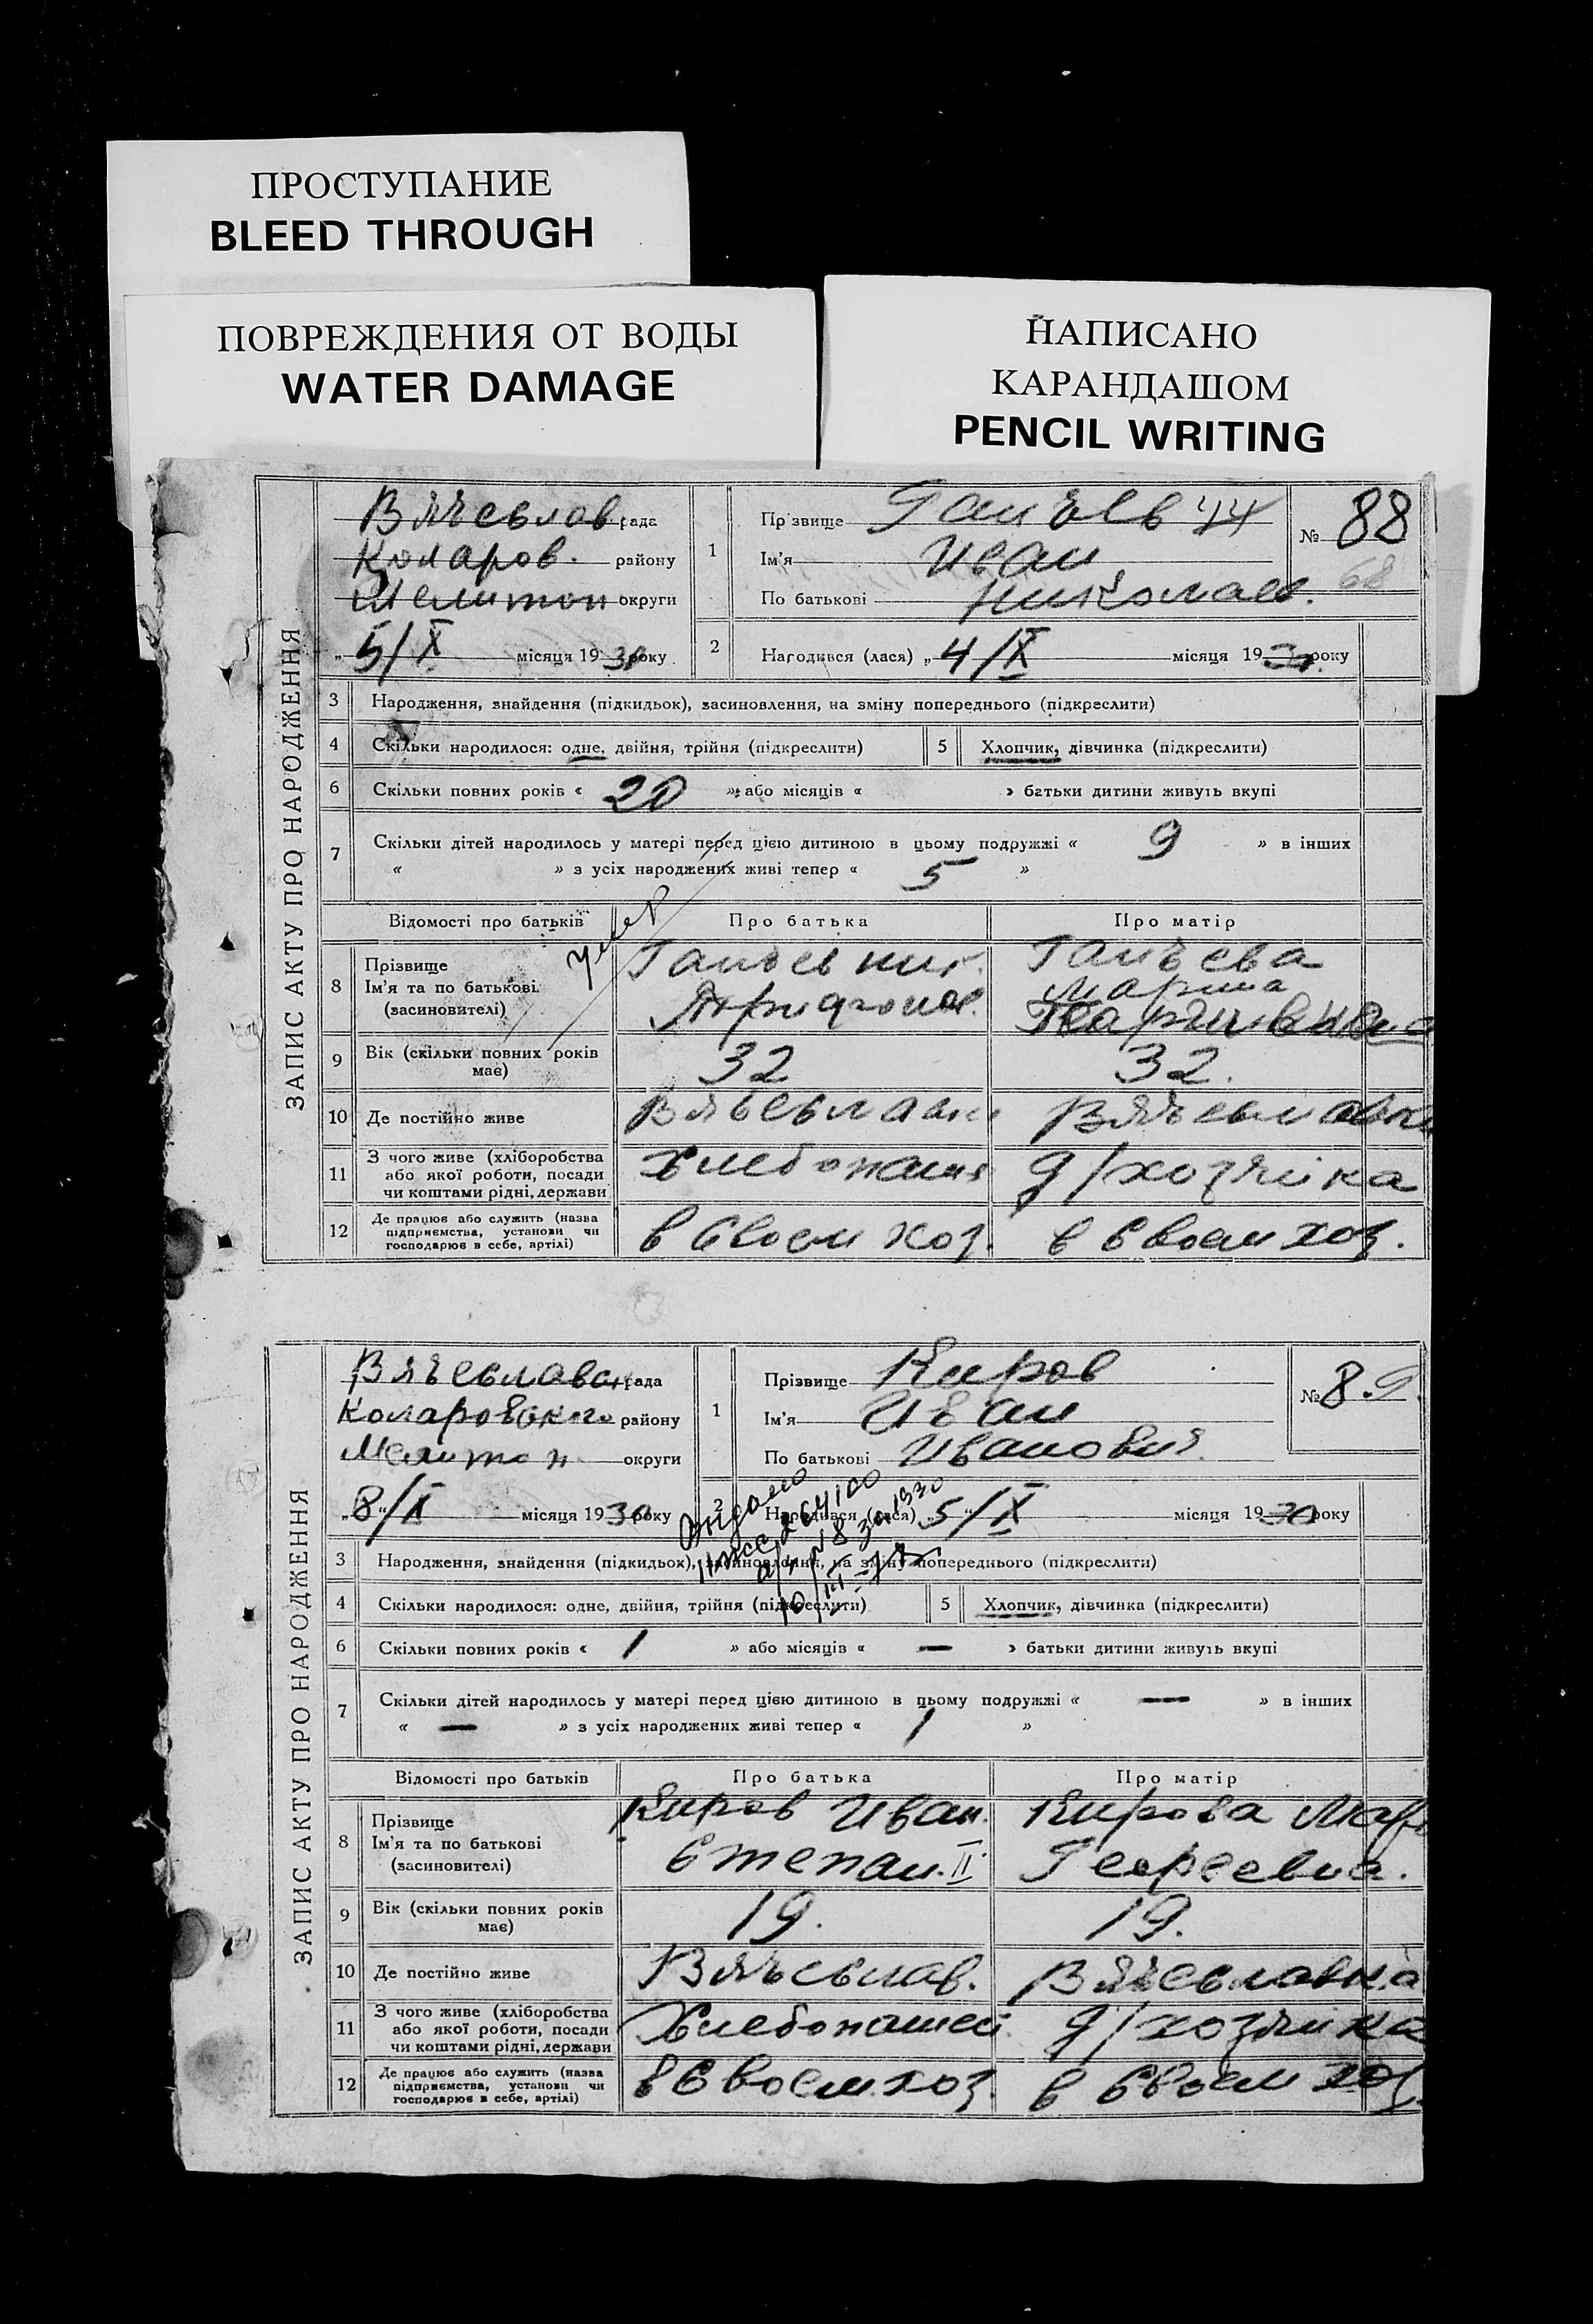 ПРОСТУПАНИЕ
BLEED THROUGH
ПОВРЕЖДЕНИЯ ОТ ВОДЫ
WATER DAMAGE
НАПИСАНО
КАРАНДАШОМ
PENCIL WRITING
ЗАПИС АКТУ ПРО НАРОДЖЕННЯ
Вячеслов рада
Коларов. району
Мелитоп округи
„5/X місяця 1930 року
1 Прізвище Ганчев
Ім'я Иван
По батькові Николаев.
№ 88
68
2 Народився (лася) „4/X місяця 1930 року
3 Народження, знайдення (підкидьок), засиновлення, на зміну попереднього (підкреслити)
4 Скільки народилося: одне, двійня, трійня (підкреслити) 5 Хлопчик, дівчинка (підкреслити)
6 Скільки повних років « 20 » або місяців « » батьки дитини живуть вкупі
7 Скільки дітей народилось у матері перед цією дитиною в цьому подружжі « 9 » в інших
« » з усіх народжених живі тепер « 5 »
Умер
Відомості про батьків Про батька Про матір
8 Прізвище
Ім'я та по батькові
(засновителі)
Ганчев Ник.
Ганчева
Марина
9 Вік (скільки повних років має) 32 32.
10 Де постійно живе Вячеславк Вячеславка
11 З чого живе (хліборобства
або якої роботи, посади
чи коштами рідні, держави
Хлебопаш д/хозяйка
12 Де працює або служить (назва
підприємства, установи чи
господарює в себе, артілі)
в своем хоз. в своем хоз.
ЗАПИС АКТУ ПРО НАРОДЖЕННЯ
Вячеславск рада
Коларовского району
Мелитоп. округи
„8/X місяця 1930 року
1 Прізвище Киров
Ім'я Иван
По батькові Иванович
№ 89
2 Народився (лася) „5/X місяця 1930 року
Видано
3 Народження, знайдення (підкидьок), засиновлення, на зміну попереднього (підкреслити)
4 Скільки народилося: одне, двійня, трійня (підкреслити) 5 Хлопчик, дівчинка (підкреслити)
6 Скільки повних років « 1 » або місяців « — » батьки дитини живуть вкупі
7 Скільки дітей народилось у матері перед цією дитиною в цьому подружжі « — » в інших
« — » з усіх народжених живі тепер « 1 »
Відомості про батьків Про батька Про матір
8 Прізвище
Ім'я та по батькові
(засиновителі)
Киров Иван.
Степан. II
Кирова
Георгевна.
9 Вік (скільки повних років має) 19. 19.
10 Де постійно живе Вячеслав. Вячеславка
11 З чого живе (хліборобства
або якої роботи, посади
чи коштами рідні, держави
Хлебопашец д/хозяйка
12 Де працює або служить (назва
підприємства, установи чи
господарює в себе, артілі)
в своем хоз. в своем хоз.